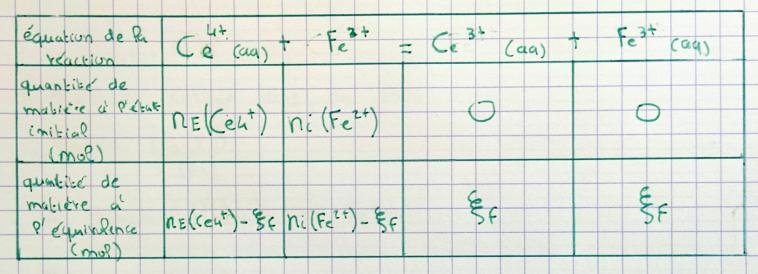 équation de la réaction Ce⁴⁺ (aq) + Fe²⁺ = Ce³⁺ (aq) + Fe³⁺ (aq)
quantité de matière à l'état initial (mol) nE(Ce4⁺) ni(Fe²⁺) 0 0
quantité de matière à l'équivalence (mol) nE(Ce4⁺) - ξf ni(Fe²⁺) - ξf ξf ξf